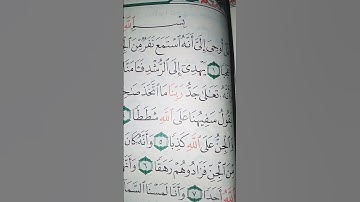 بِسْمِ ٱللَّهِ
أُوحِىَ إِلَىَّ أَنَّهُ ٱسْتَمَعَ نَفَرٌ مِّنَ
١ يَهْدِىٓ إِلَى ٱلرُّشْدِ فَـَٔامَنَّا
تَعَـٰلَىٰ جَدُّ رَبِّنَا مَا ٱتَّخَذَ
يَقُولُ سَفِيهُنَا عَلَى ٱللَّهِ شَطَطًا
وَٱلْجِنُّ عَلَى ٱللَّهِ كَذِبًا ٥ وَأَنَّهُۥ كَانَ
مِّنَ ٱلْجِنِّ فَزَادُوهُمْ رَهَقًا ٦
ٱللَّهُ أَحَدًا ٧ وَأَنَّا لَمَسْنَا